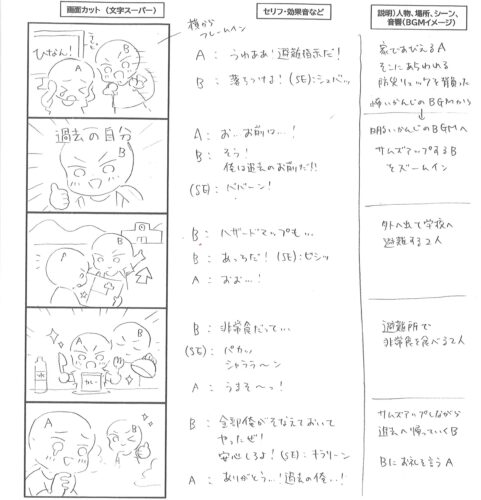 画面カット（文字スーパー）
セリフ・効果音など
説明）人物、場所、シーン、
音響（BGMイメージ）
横から
フレームイン
ひなん！
A
B
A：うわああ！避難指示だ！
B：落ちつけよ！（SE）：シュバッ
家であびえるA
そこにあらわれる
防災リュックを背負った
怖いかんじのBGMから
↓
明るいかんじのBGMへ
過去の自分
B
A：お…お前は…！
B：そう！
俺は過去のお前だ!!
（SE）：ババーン！
サムズアップするB
をズームイン
A
B
B：ハザードマップも…
B：あっちだ！（SE）：ビシッ
A：おお…！
外へ出て学校へ
避難する2人
A
B
水
カレー
B：非常食だって…
（SE）：パカッ
シャララ〜ン
A：うまそ〜っ！
避難所で
非常食を食べる2人
A
B
B：全部俺がそなえておいて
やったぜ！
安心しろよ！（SE）：キラリーン
A：ありがとう…！過去の俺…！
サムズアップしながら
過去へ帰っていくB
Bにお礼を言うA